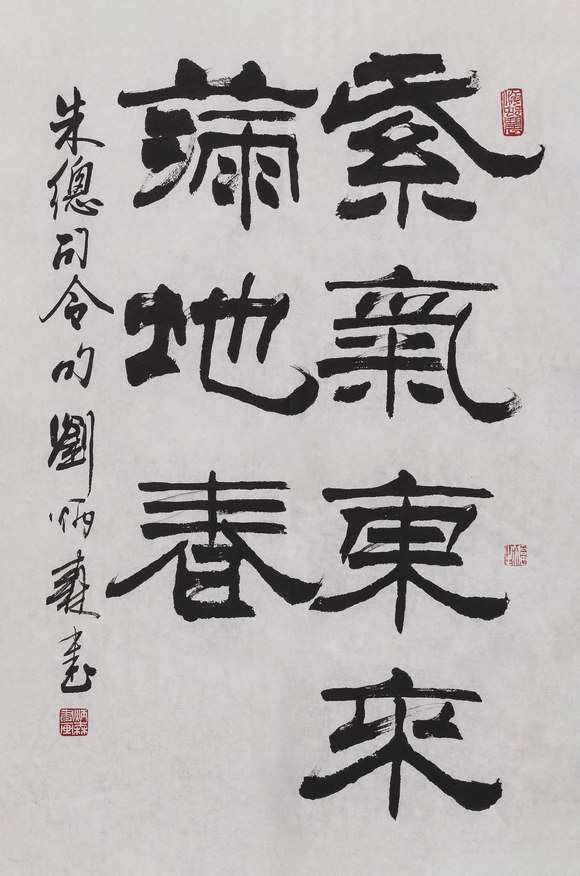 紫氣東來
滿地春
朱總司令句劉炳森書